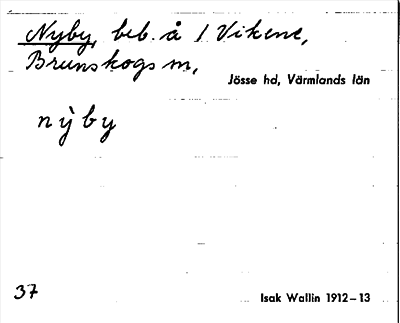 Nyby, beb. å 1 Vikene,
Brunskogs m,
Jösse hd, Värmlands län
nỳby
37
Isak Wallin 1912–13